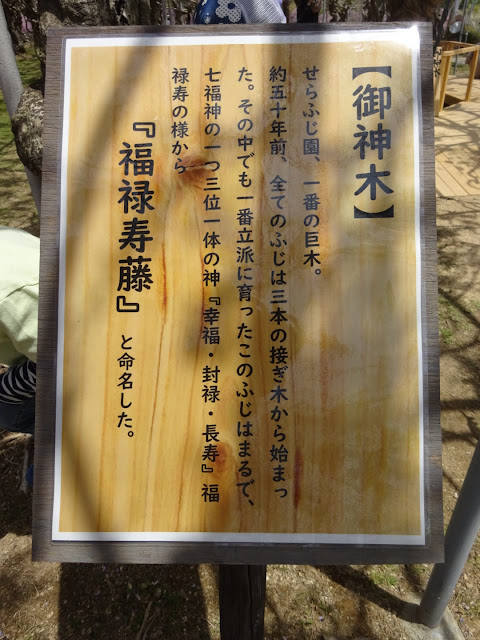 【御神木】
せらふじ園、一番の巨木。
約五十年前、全てのふじは三本の接ぎ木から始まっ
た。その中でも一番立派に育ったこのふじはまるで、
七福神の一つ三位一体の神『幸福・封禄・長寿』福
禄寿の様から
『福禄寿藤』と命名した。